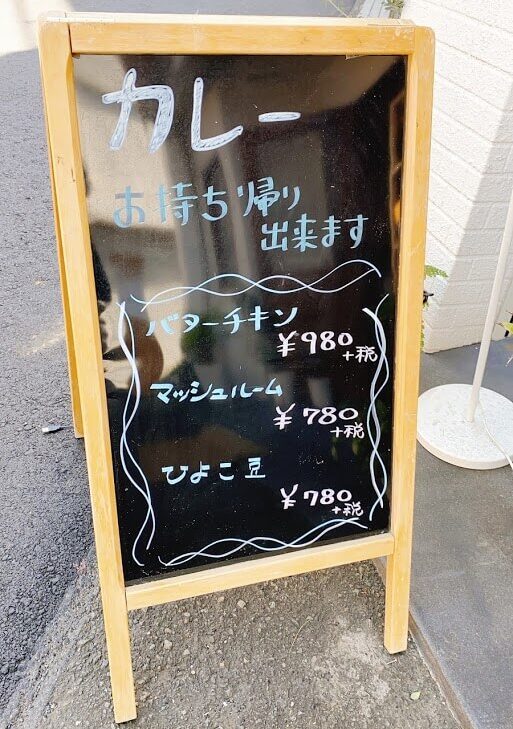 カレー
お持ち帰り
出来ます
バターチキン
¥980
+税
マッシュルーム
¥780
+税
ひよこ豆
¥780
+税